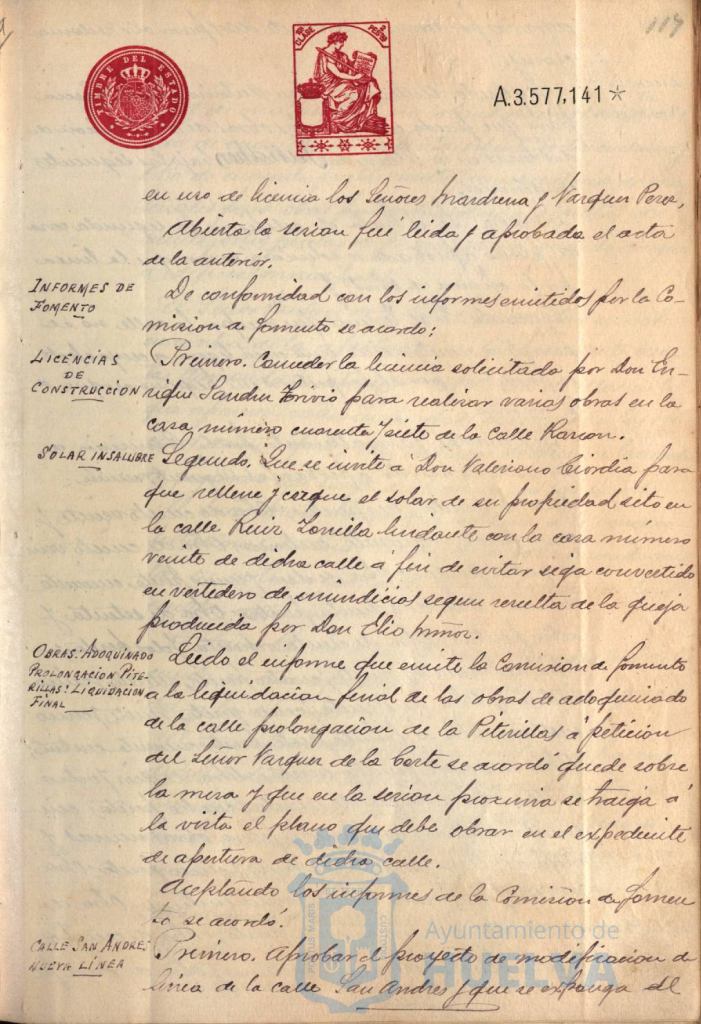 117
TIMBRE DEL ESTADO
A.3.577,141
en uso de licencia los Señores Mardrena y Vazquez Perez,
Abierta la sesion fué leida y aprobada el acta
de la anterior.
INFORMES DE
FOMENTO
De conformidad con los informes emitidos por la Co-
mision de fomento se acordo:
LICENCIAS
DE
CONSTRUCCION
Primero. Conceder la licencia solicitada por Don En-
rique Sandru Trivio para realizar varias obras en la
casa número cuarenta y siete de la Calle Rascon.
SOLAR INSALUBRE
Segundo. Que se invite á Don Valeriano Ciordia para
que rellene y cerque el solar de su propiedad sito en
la calle Ruiz Zorrilla lindante con la casa número
veinte de dicha calle á fin de evitar siga convertido
en vertedero de inmundicias segun resulta de la queja
producida por Don Elio
OBRAS: ADOQUINADO
PROLONGACION PITE-
RILLAS: LIQUIDACION
FINAL
Leido el informe que emite la Comision de fomento
a la liquidacion final de las obras de adoquinado
de la calle prolongacion de la Piterillas á peticion
del Señor Vazquez de la Corte se acordó quede sobre
la mesa y que en la sesion proxima se traiga á
la vista el plano que debe obrar en el expediente
de apertura de dicha calle.
Aceptando los informes de la Comision de fomen
to se acordó:
CALLE SAN ANDRES
NUEVA LÍNEA
Primero. Aprobar el proyecto de modificacion de
línea de la calle San Andres y que se exponga al
Ayuntamiento de
HUELVA